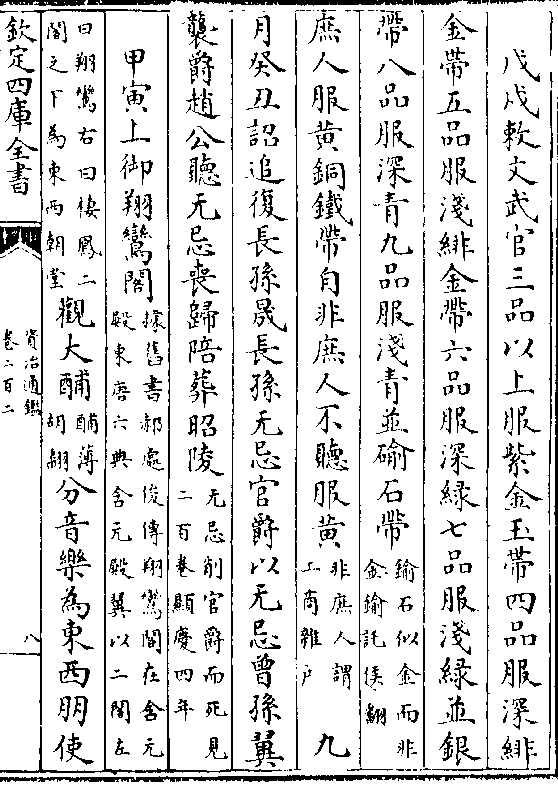 戊戌敕文武官三品以上服紫金玉帶四品服深緋
金帶五品服淺緋金帶六品服深緑七品服淺緑並銀
帶八品服深青九品服淺青並鍮石帶鍮石似金而非
金鍮託侯翻
庶人服黄銅鐵帶自非庶人不聽服黄非庶人謂
工商雜户九
月癸丑詔追復長孫晟長孫无忌官爵以无忌曾孫翼
襲爵趙公聽无忌喪歸陪葬昭陵无忌削官爵而死見
二百卷顯慶四年
甲寅上御翔鸞閣據舊書郝處俊傳翔鸞閣在含元
殿東唐六典含元殿翼以二閣左
曰翔鸞右曰棲鳳二
閣之下為東西朝堂觀大酺酺薄
胡翻分音樂為東西朋使
欽定四庫全書
資治通鑑
卷二百二
八